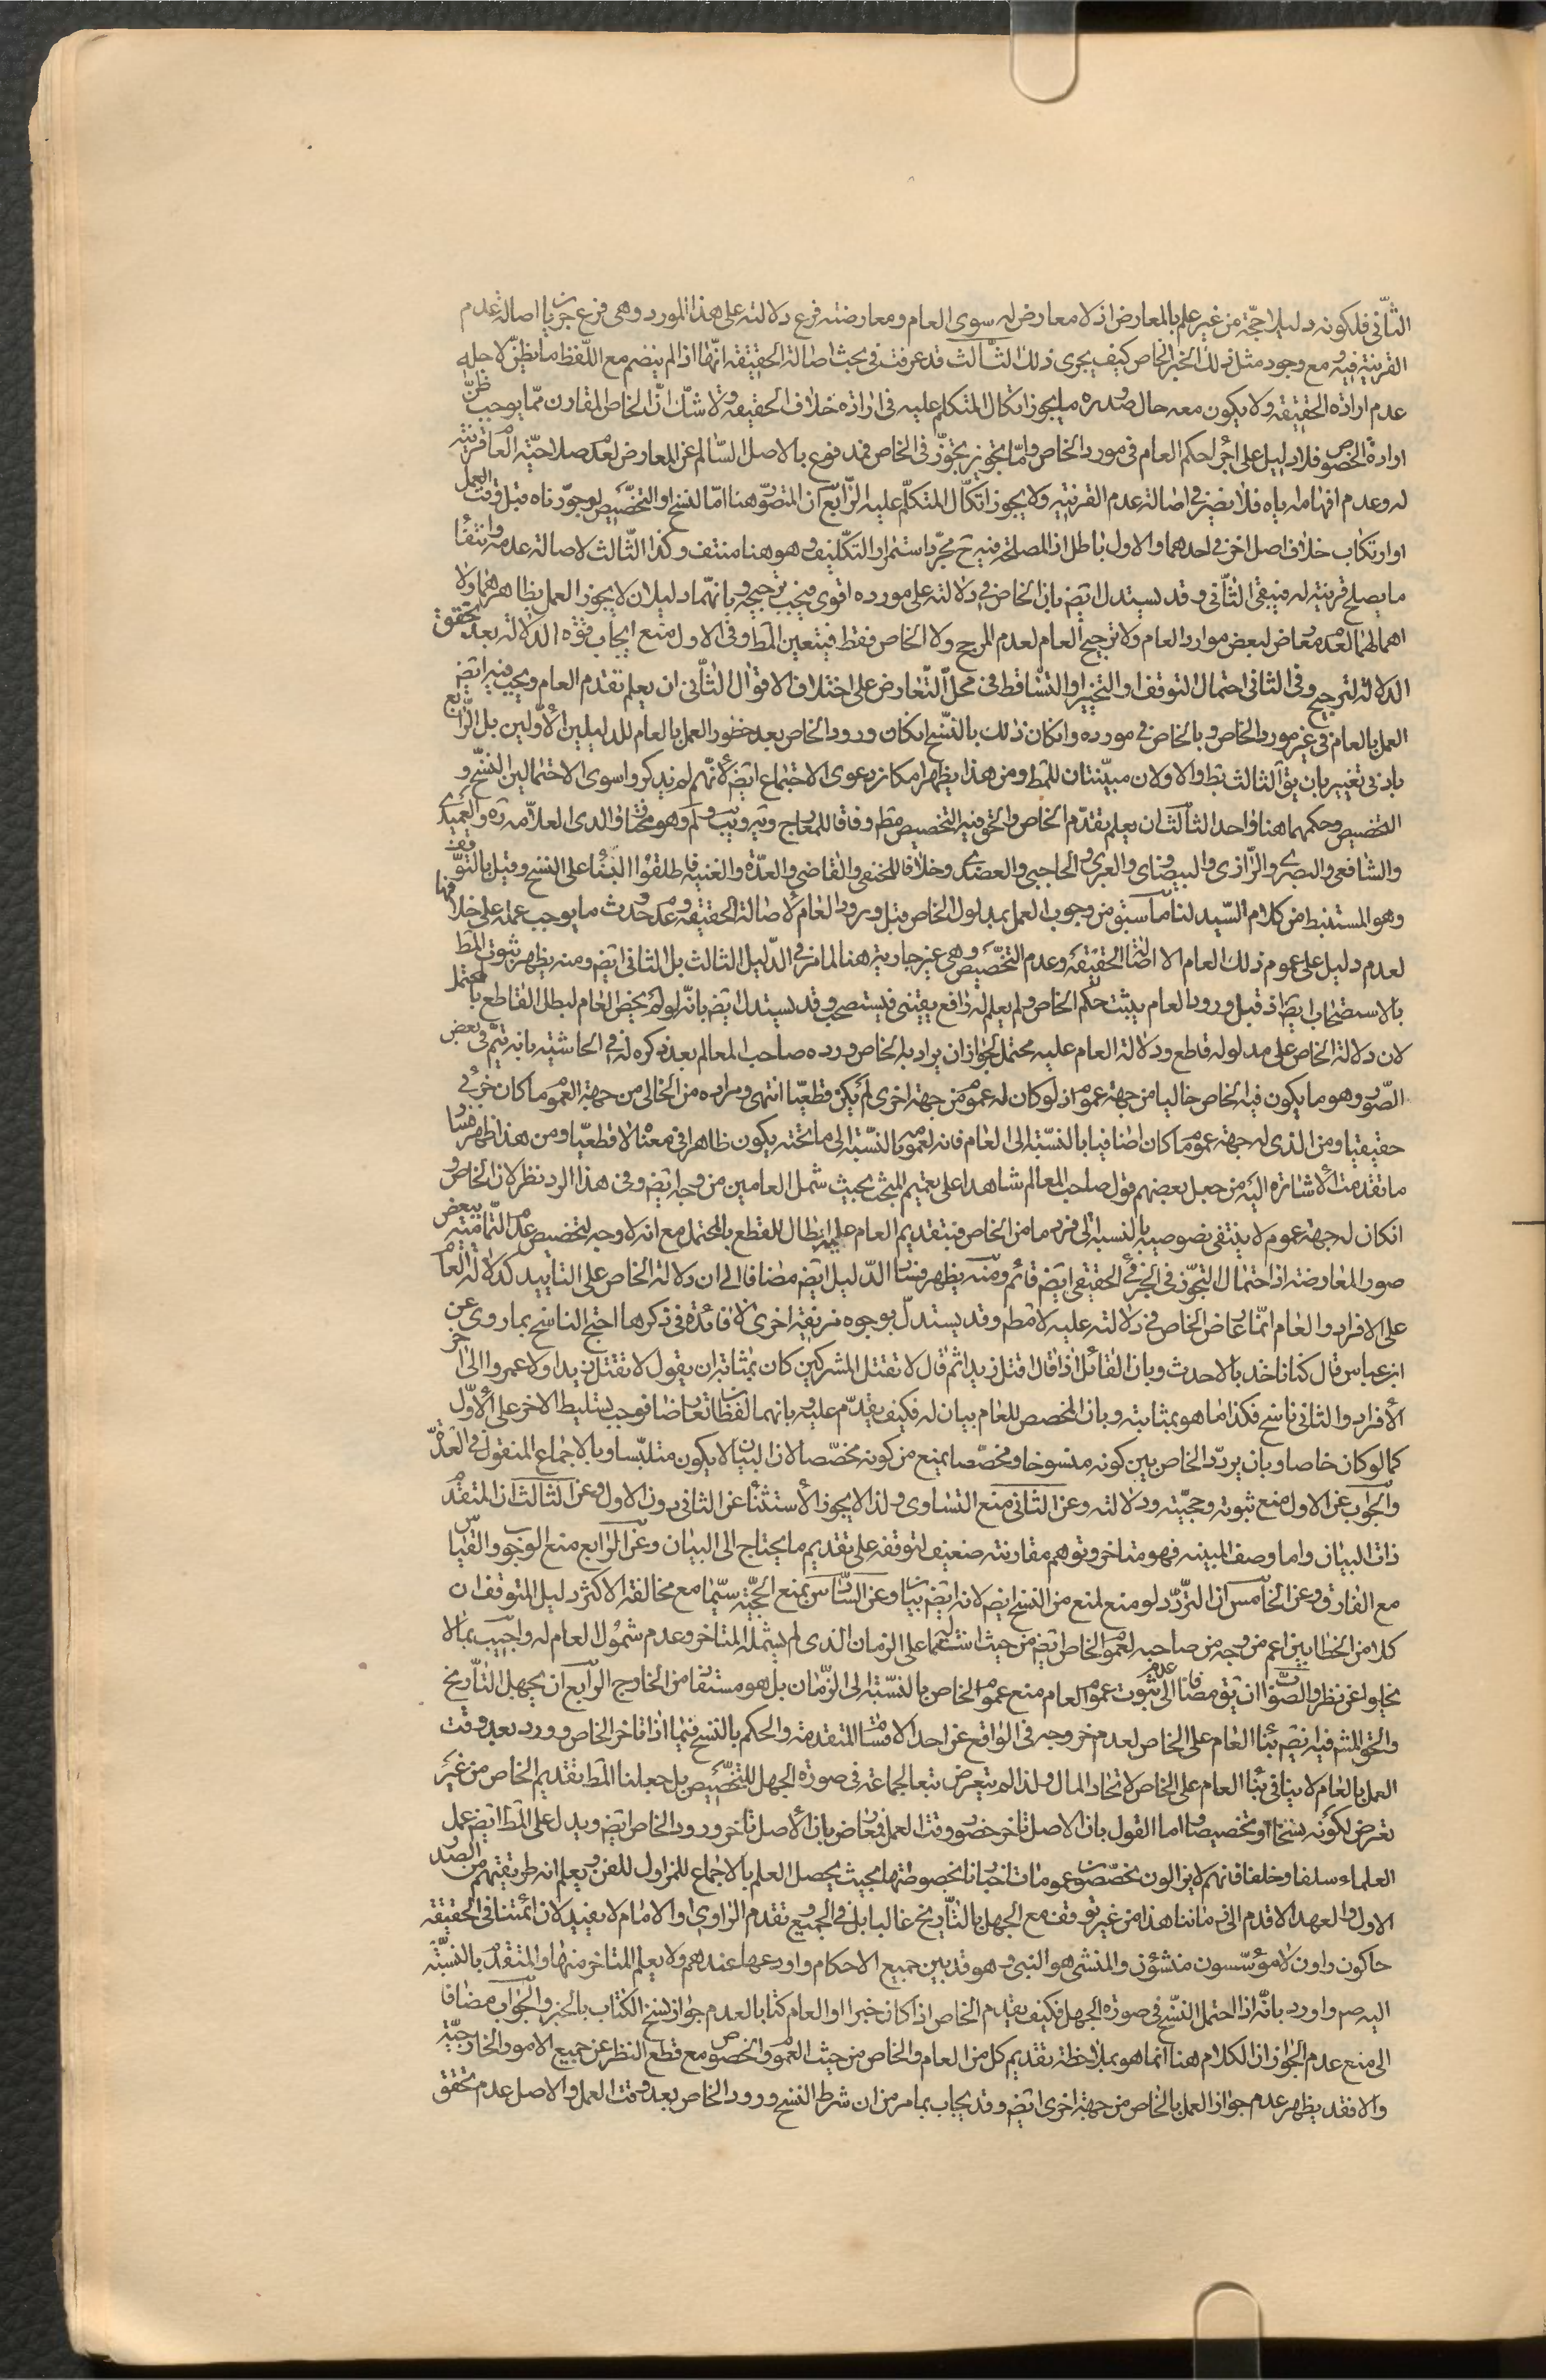 الثانى فلكونه دليلا حجّة من غير علم بالمعارض اذ لا معارض له سوى العام ومعارضته فرع دلالته على هذا المورد وهى فرع جريان اصالة عدم
القرينة فيه ومع وجود مثل ذلك الخبر الخاص كيف يجرى ذلك الثالث قد عرفت فى بحث اصالة الحقيقة انّها اذا لم ينضم مع اللّفظ ما يظنّ لاجله
عدم ارادة الحقيقة ولا يكون معه حال صدوره ما يجوز اتكال المتكلم عليه فى ارادة خلاف الحقيقة ولا شك انّ الخاص المقارن ممّا يوجب ظنّ
ارادة الخصوص فلا دليل على اجراء حكم العام فى مورد الخاص وامّا تجويز تجوّز فى الخاص فمدفوع بالاصل السّالم عن المعارض لعدم صلاحيّة العام قرينة
له وعدم افهامه اياه فلا يضير فى اصالة عدم القرينة ولا يجوز اتكال المتكلّم عليه الرّابع ان المتصوّر هنا امّا النسخ او التخصيص لو جوّزناه قبل وقت العمل
او ارتكاب خلاف اصل اخر فى احدهما والاول باطل اذ المصلحة فيه ح مجرّد استمرار التكليف وهو هنا منتف وكذا الثّالث لاصالة عدمه وانتفاء
ما يصلح قرينة له فيبقى الثّانى وقد يستدل ايضا بان الخاص فى دلالته على مورده اقوى فيجب ترجيحه وبانهما دليلان لا يجوز العمل بظاهرهما ولا
اهمالهما لعدم معارض لبعض موارد العام ولا ترجيح العام لعدم المرجح ولا الخاص فقط فيتعين المط وفى الاول منع ايجاب قوّة الدلالة بعد تحقق
الدلالة لترجيح وفى الثانى احتمال التوقف او التخيير او التساقط فى محل التّعارض على اختلاف الاقوال الثّانى ان يعلم تقدم العام ويجب فيه ايض
العمل بالعام فى غير مورد الخاص وبالخاص فى مورده وان كان ذلك بالنّسخ ان كان ورود الخاص بعد حضور العمل بالعام للدليلين الاوّلين بل الرّابع
بادنى تغيير بان يق الثالث بط والاولان مبيّنتان للمط ومن هذا يظهر امكان دعوى الاجتماع ايض لانّهم لم يذكروا سوى الاحتمالين النّسخ و
التخصيص وحكمهما هنا واحد الثّالث ان يعلم تقدّم الخاص والحق فيه التخصيص مطم وفاقا للمعارج ويه ويب ولم وهو مختار والدى العلاّمة ره والعميدى
والشافعى والبصرى والرّازى والبيضاوى والعبرى والحاجبى والعضدى وخلافا للحنفى والقاضى والعدّة والغنيه فاطلقوا البناء على النسخ وقيل بالتوقف
وهو المستنبط من كلام السّيد لنا ما سبق من وجوب العمل بمدلول الخاص قبل ورود العام لاصالة الحقيقة وعدم حدوث ما يوجب عمله على خلافها
لعدم دليل على عموم ذلك العام الا اصالة الحقيقة وعدم التخصّيص وهى غير جارية هنا لما مر فى الدّليل الثالث بل الثانى ايض ومنه يظهر ثبوت المط
بالاستصحاب ايضا اذ قبل ورود العام يثبت حكم الخاص ولم يعلم له رافع يقينى فيستصحب وقد يستدل ايض بانّه لو لم يخصّ العام لبطل القاطع بالمحتمل
لان دلالة الخاص على مدلوله قاطع ودلالة العام عليه محتمل لجواز ان يراد به الخاص ورده صاحب المعالم بعد ذكره له فى الحاشية بانه يتمّ فى بعض
الصّور وهو ما يكون فيه الخاص خاليا من جهة عموم اذ لو كان له عموم من جهة اخرى لم يكن قطعيّا انتهى ومراده من الخالى من جهة العموم ما كان جزئى
حقيقيا ومن الذى له جهة عموم ما كان اضافيا بالنسبة الى العام فانه لعمومه بالنسبة الى ما تحته يكون ظاهرا فى معناه لا قطعيّا ومن هذا ظهر فساد
ما تقدمت الاشارة اليه من جعل بعضهم قول صاحب المعالم شاهدا على تعميم المبحث بحيث شمل العامين من وجه ايض وفى هذا الرد نظر لان الخاص و
ان كان له جهة عموم لا ينتفى نصوصيته بالنسبة الى فرد ما من الخاص فبتقديم العام عليه ابطال للقطع بالمحتمل مع انه لا وجه لتخصيص عدم التّمامية ببعض
صور المعارضة اذ احتمال التجوّز فى الجزئى الحقيقى ايض قائم ومنه يظهر فساد الدّليل ايض مضافا الى ان دلالة الخاص على التابيد كدلالة العام
على الافراد والعام انّما يعارض الخاص فى دلالته عليه لا مطم وقد يستدلّ بوجوه مزيفة اخرى لا فائدة فى ذكرها احتج الناسخ بما روى عن
ابن عباس قال كنا ناخذ بالاحدث وبان القائل اذا قال اقتل زيدا ثم قال لا تقتل المشركين كان بمثابة ان يقول لا تقتل زيدا ولا عمروا الى اخر
الافراد والثانى ناسخ فكذا ما هو بمثابته وبان المخصص للعام بيان له فكيف يقدّم عليه وبانهما لفظان تعارضا فوجب تسليط الاخر على الاوّل
كما لو كان خاصا وبان يردّد الخاص بين كونه منسوخا ومخصّصا يمنع من كونه مخصّصا لان البيان لا يكون متلبّسا وبالاجماع المنقول فى العدّة
والجواب عن الاول منع ثبوته وحجيّته ودلالته وعن الثانى منع التساوى ولذا لا يجوز الاستثناء عن الثانى دون الاول وعن الثالث ان المتقدم
ذات البيان واما وصف المبينية فهو متاخر وتوهم مقارنته ضعيف لتوقفه على تقديم ما يحتاج الى البيان وعن الرّابع منع الوجوب والقياس
مع الفارق وعن الخامس ان التردّد لو منع لمنع من النسخ ايض لانه ايض بيان وعن السّادس بمنع الحجّية سيّما مع مخالفة الاكثر دليل المتوقف ان
كلا من الخطابين اعم من وجه من صاحبه لعموم الخاص ايض من حيث اشتماله على الزمان الذى لم يشمله المتاخر وعدم شمول العام له واجيب بما لا
يخلو عن نظر والصّواب ان يق مضافا الى عدم ثبوت عموم العام منع عموم الخاص بالنسبة الى الزّمان بل هو مستفاد من الخارج الرّابع ان يجهل التّاريخ
والحق المشهور فيه ايض بناء العام على الخاص لعدم خروجه فى الواقع عن احد الاقسام المتقدمة والحكم بالنسخ فيما اذا تاخر الخاص وورد بعد وقت
العمل بالعام لا ينافى بناء العام على الخاص لاتحاد المال ولذا لم يتعرض تبعا لجماعة فى صورة الجهل للتخصّيص بل جعلنا المط تقديم الخاص من غير
تعرض لكونه نسخا او تخصيصا واما القول بان الاصل تاخر حضور وقت العمل فمعارض بان الاصل تاخر ورود الخاص ايض ويدل على المط ايض عمل
العلماء سلفا وخلفا فانهم لا يزالون يخصّصون عمومات اخبارنا بخصوصاتها بحيث يحصل العلم بالاجماع للمزاول للفن ويعلم انه طريقتهم من الصدر
الاول والعهد الاقدم الى زماننا هذا من غير توقف مع الجهل بالتّاريخ غالبا بل فى الجميع وتقدم الرّاوى او الامام لا يفيد لان ائمتنا فى الحقيقة
حاكون راون لا مؤسّسون منشؤن والمنشى هو النبى وهو قد بين جميع الاحكام واودعها عندهم ولا يعلم المتاخر منها والمتقدم بالنسبّة
اليه صم واورد بانّه اذا احتمل النسّخ فى صورة الجهل فكيف يقدم الخاص اذا كان خبرا او العام كتابا لعدم جواز نسخ الكتاب بالخبر والجواب مضافا
الى منع عدم الجواز ان الكلام هنا انما هو بملاحظة تقديم كل من العام والخاص من حيث العموم والخصوص مع قطع النظر عن جميع الامور الخارجيّة
والا فقد يظهر عدم جواز العمل بالخاص من جهة اخرى ايض وقد يجاب بما مر من ان شرط النسخ ورود الخاص بعد وقت العمل والاصل عدم تحقق